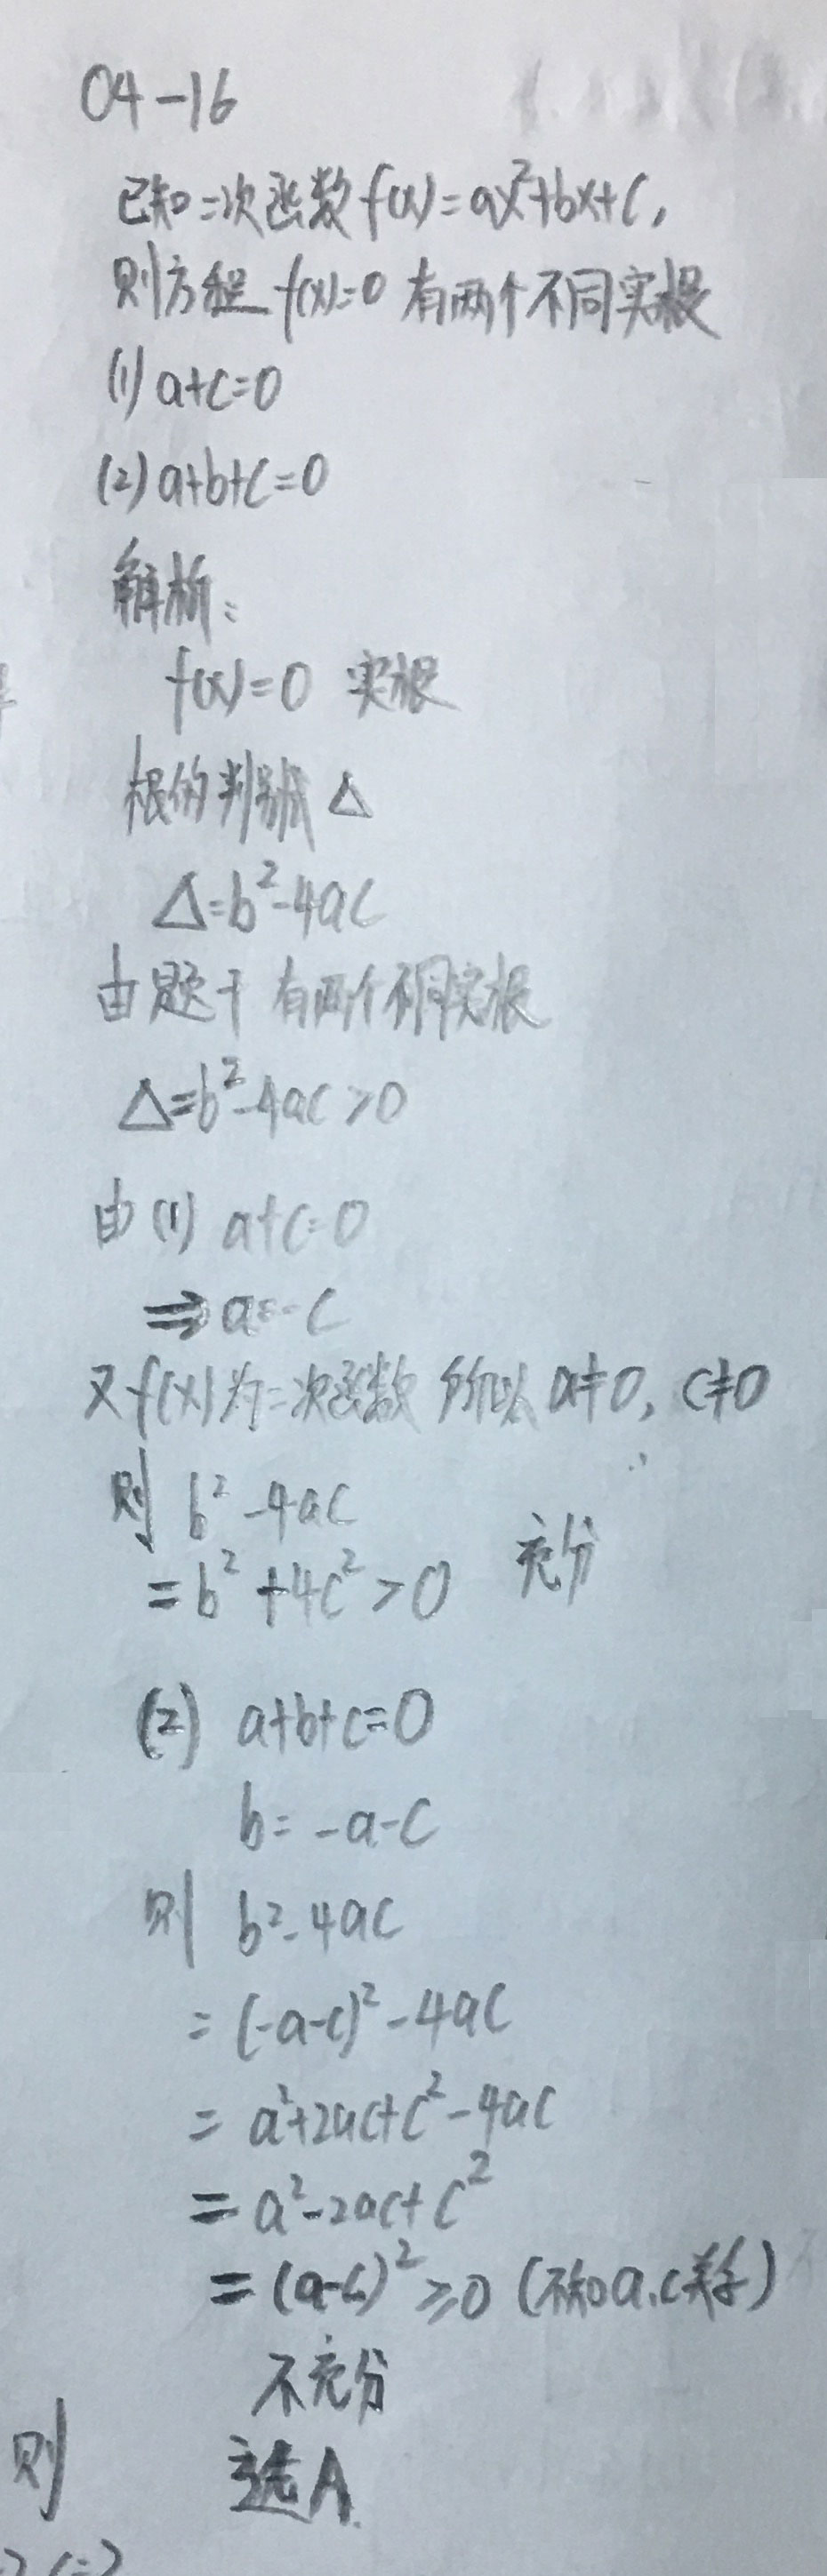 04-16
已知二次函数f(x)=ax²+bx+c,
则方程f(x)=0有两个不同实根
(1) a+c=0
(2) a+b+c=0
解析:
f(x)=0 实根
根的判别式△
△=b²-4ac
由题干 有两个不同实根
△=b²-4ac>0
由(1) a+c=0
⇒a=-c
又f(x)为二次函数 所以a≠0, c≠0
则 b²-4ac
=b²+4c²>0 充分
(2) a+b+c=0
b=-a-c
则 b²-4ac
=(-a-c)²-4ac
=a²+2ac+c²-4ac
=a²-2ac+c²
=(a-c)²≥0 (不知a,c关系)
不充分
则
选A.